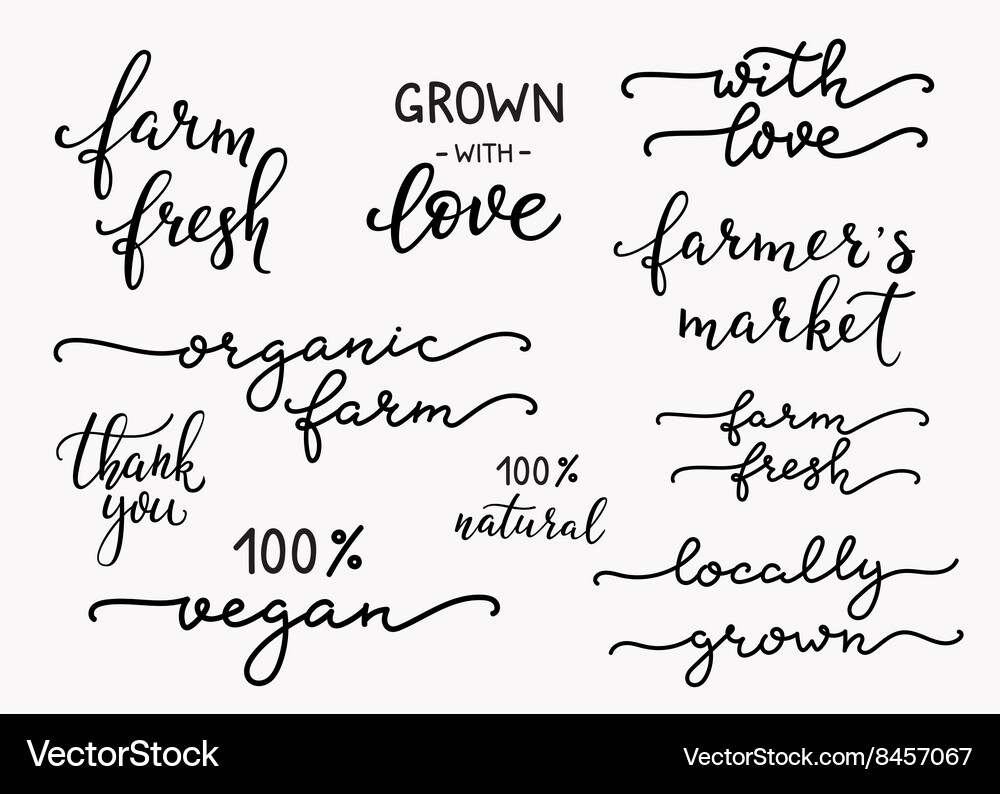 farm
fresh
GROWN
- WITH -
love
with
love
farmer's
market
organic
farm
thank
you
100%
natural
farm
fresh
100%
vegan
locally
grown
VectorStock
VectorStock.com/8457067